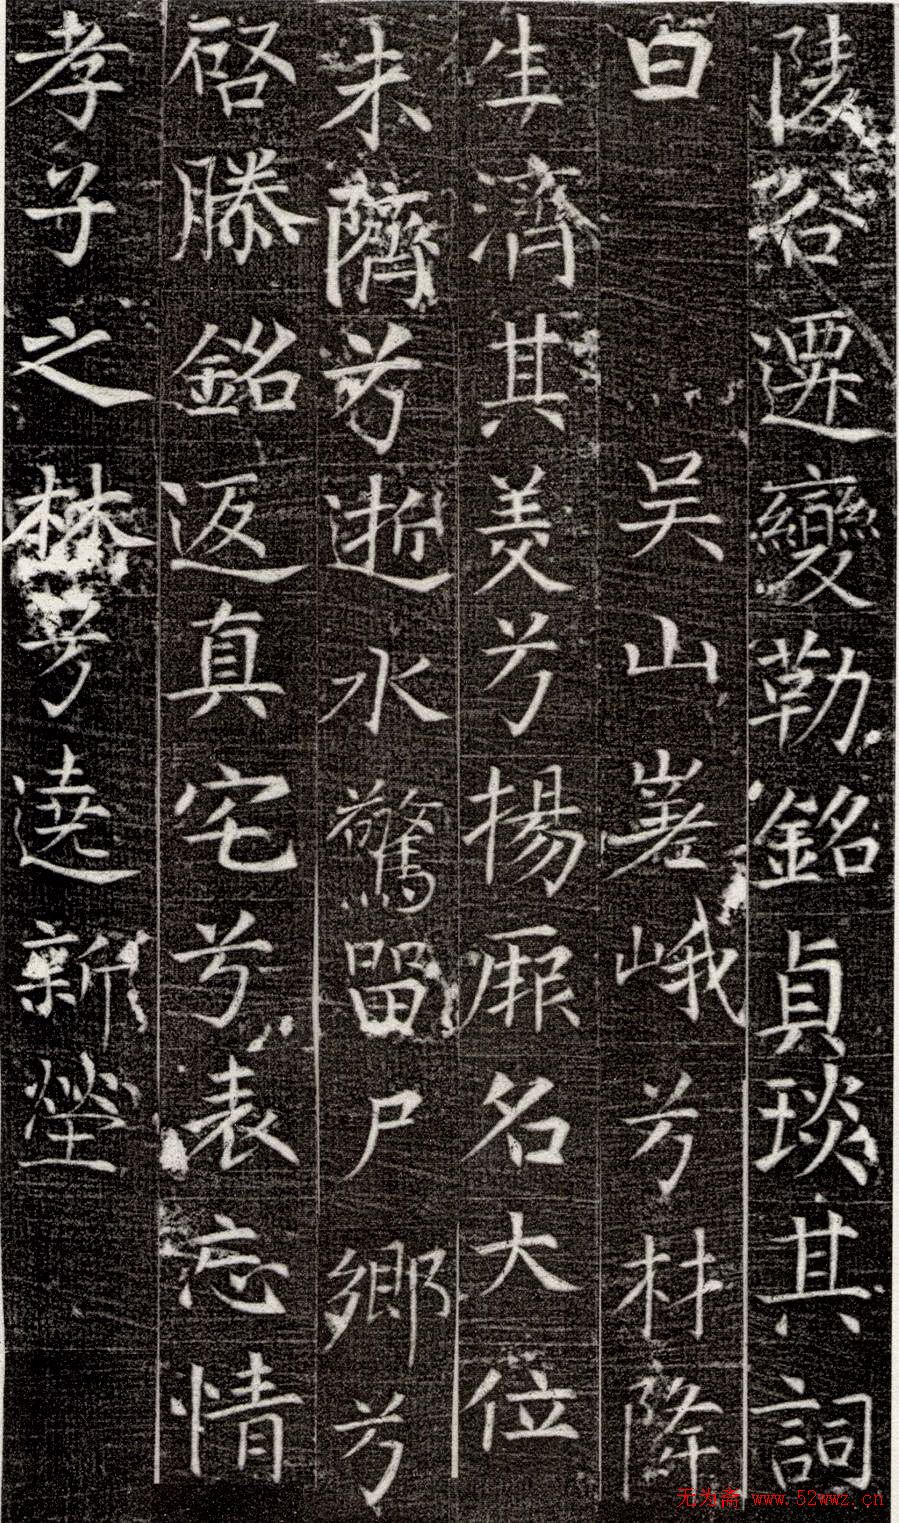 陵谷遷變勒銘貞琰其詞
曰 吳山嵳峨兮材降
生濟其美兮揚厥名大位
未隮兮逝水驚留尸鄉兮
啓滕銘返真宅兮表忘情
孝子之林兮遶新塋
无为斋 www.52wwz.cn